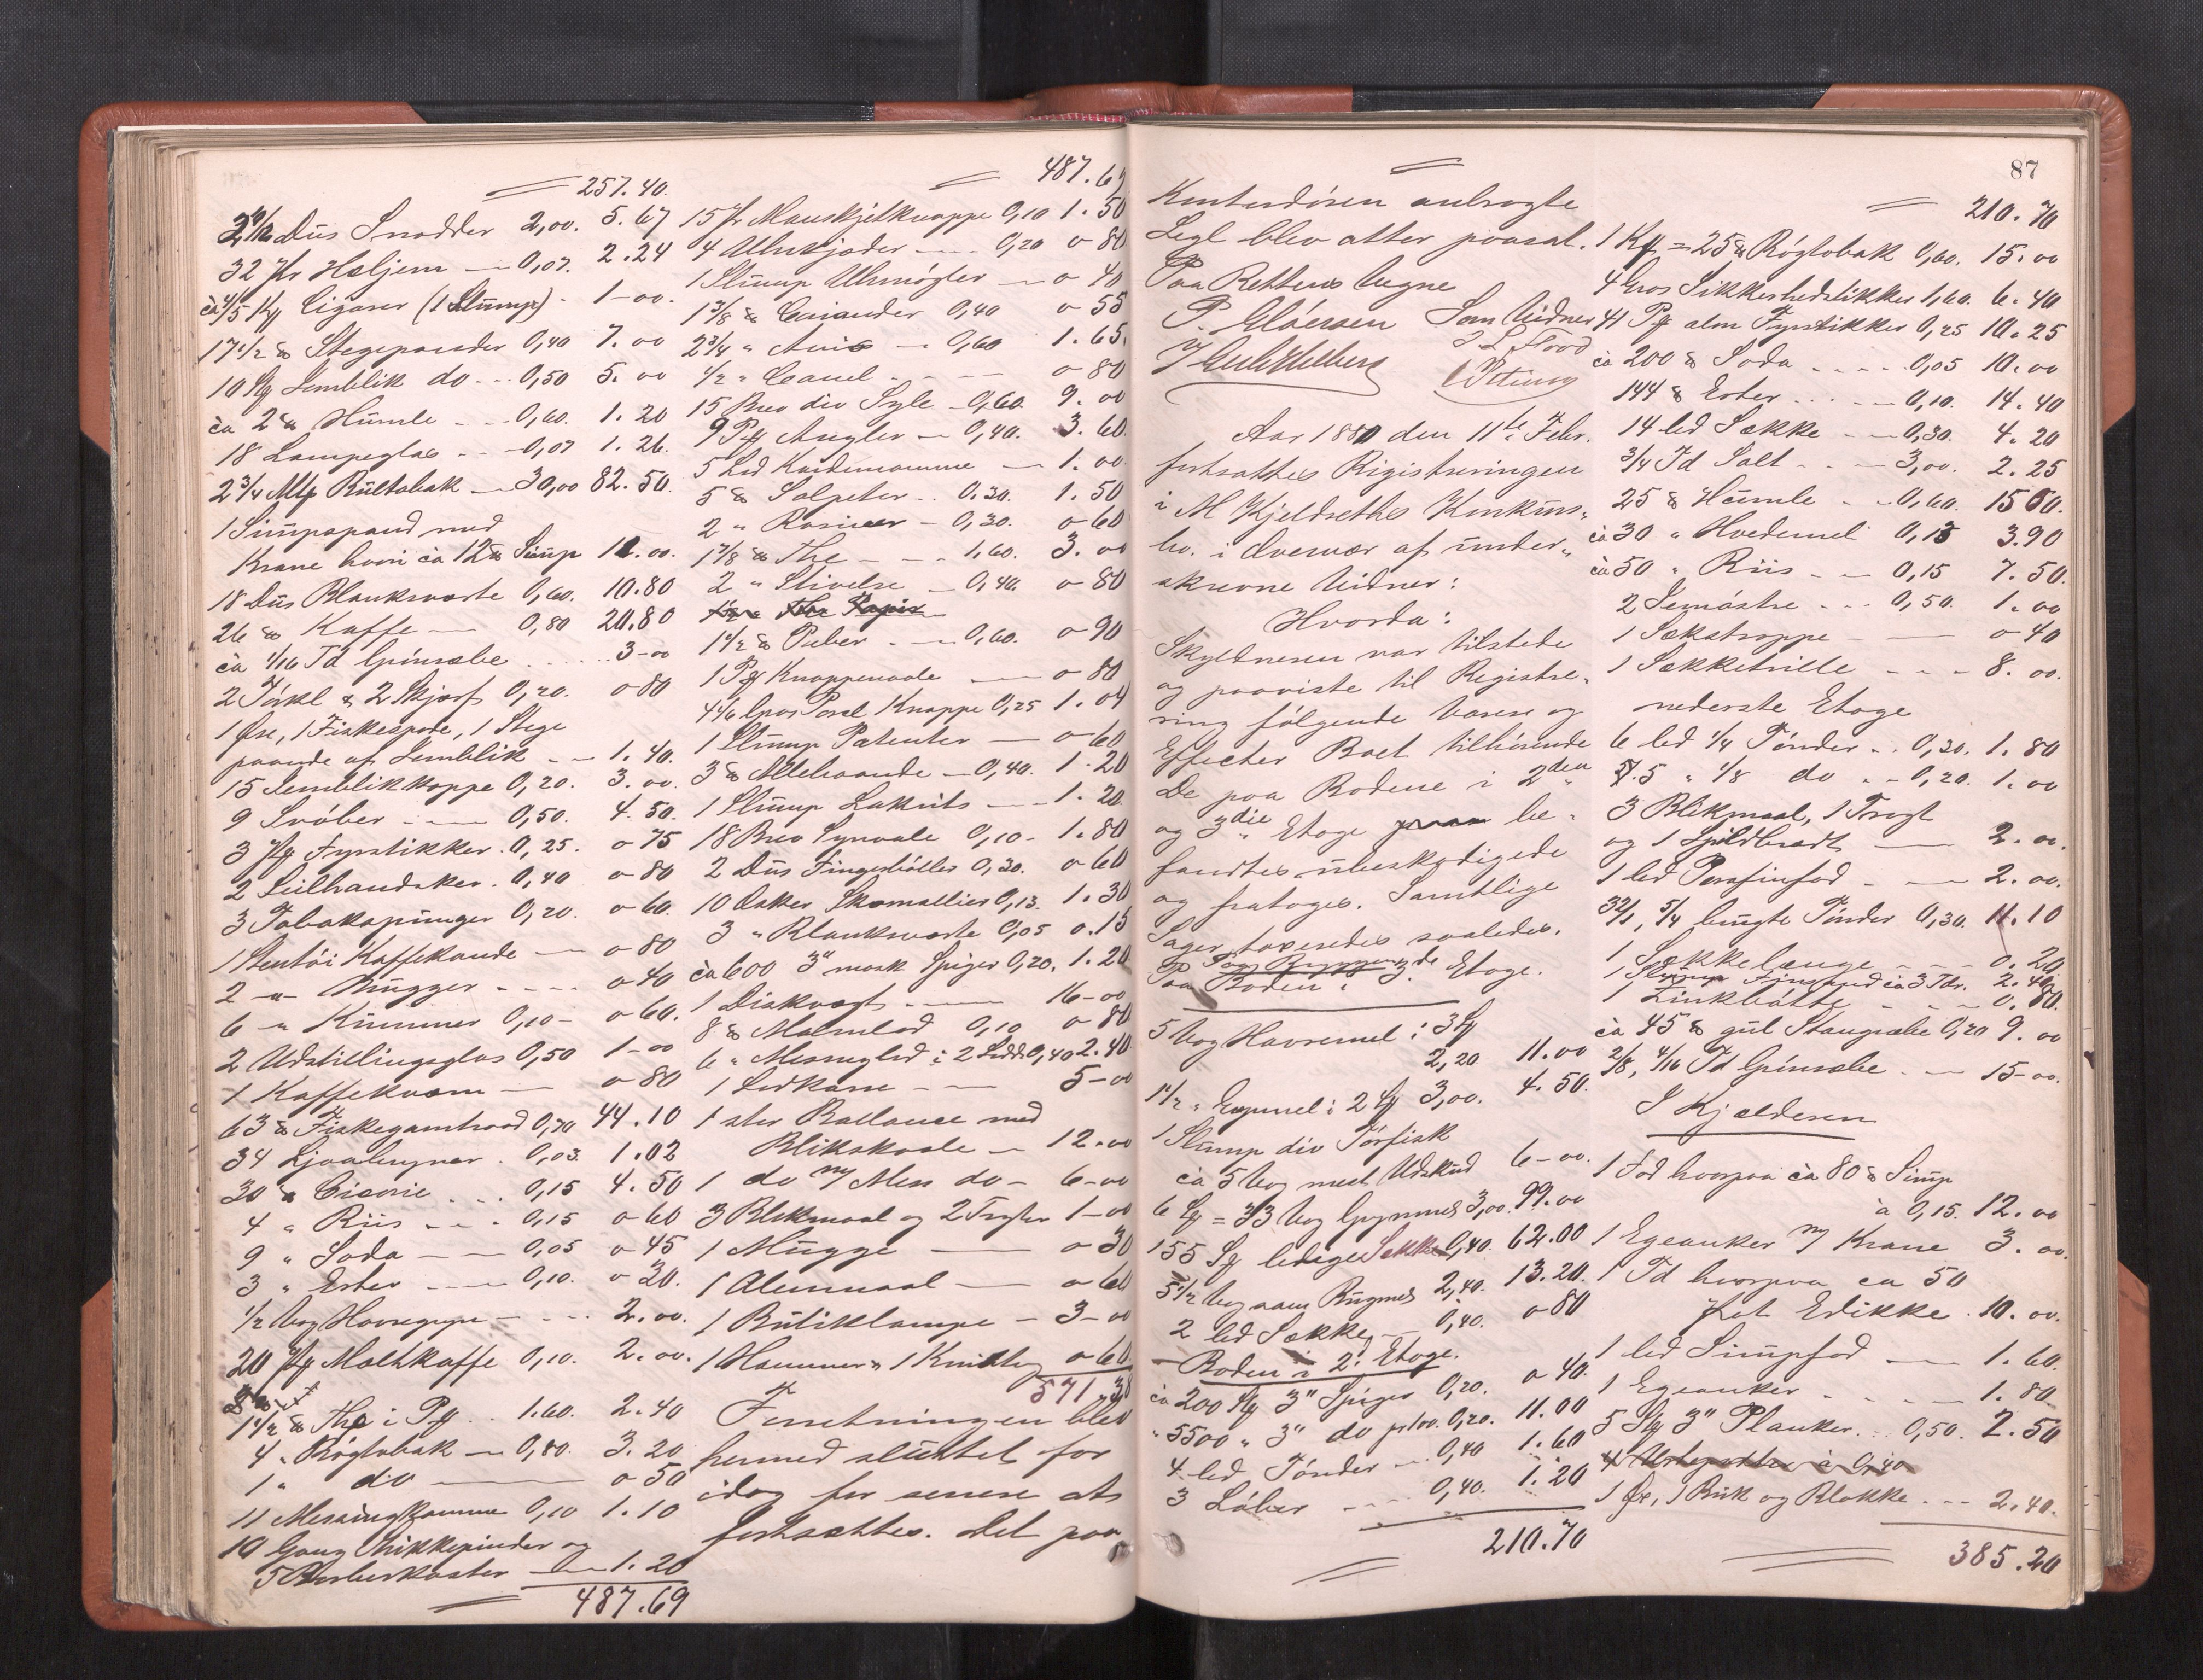 257.40.
2 10/12 Dus Snodder 2,00. 5.67
32 Hæljern — 0,07. 2.24
ca 4/5 Kg Cigarer (1 Slump) 1-00.
17 1/2 ℔ Stegepander 0,40 7.00
10 Stg Jernblik do 0,50 5.00
ca 2 ℔ Humle 0,60. 1.20
18 Lampeglas 0,07 1.26.
2 3/4 Rultobak — 30,00 82.50.
1 Simpspand med
Krane hvori ca 12 ℔ Simp 12.00.
18 Dus Blanksværte 0,60. 10.80
26 ℔ Kaffe — 0,80 20.80
ca 1/16 Td Grønsæbe 3-00
2 Tørkl & 2 Skjærf 0,20. 0 80
1 Øse, 1 Fiskespade, 1 Stege
pande af Jernblik 1.40.
15 Jernblikkoppe 0,20. 3.00.
9 Svøber 0,50. 4.50.
3 Pk Fyrstikker 0,25. 0 75
2 Seilhandsker 0,40 0 80
3 Tobakspunger 0,20. 0 60.
1 Stentøi Kaffekande — 0 80
2 -"- Mugger 0 40
6 " Kummer 0,10- 0 60.
2 Udstillingsglas 0,50 1-00
1 Kaffekværn — 0 80
63 ℔ Fiskegarntraad 0,70 44.10
34 Ljaabryner 0,03. 1.02
30 ℔ Cicorie 0,15 4.50
4 " Riis 0,15 0 60
9 " Soda 0,05 0 45
3 " Erter 0,10. 0 30.
1/2 Vog Havregryn 2.00.
20 Pk Malthkaffe 0,10. 2.00.
1 1/2 ℔ The i Pk 1.60. 2.40
4 " Røgtobak — 0,80. 3.20
1 " do — 0 50
11 Messingkamme 0,10 1.10
10 Gang Strikkepinder og
5 Barberkoster 1.20
487.69
487.69
15 Manskjetknappe 0,10 1.50
4 Uhrkjæder 0,20 0 80
1 Slump Uhrnøgler 0 40
1 3/8 ℔ Coriander 0,40 0 55
2 3/4 " Anis 0,60 1.65.
1/2 " Canel 0 80
15 Brev div Syle 0,60. 9.00
9 Pk Angler — 0,40. 3.60.
5 Lod Kardemomme — 1.00.
5 ℔ Salpeter 0.30. 1.50
2 " Rosiner — 0,30. 0 60
1 7/8 ℔ The 1.60. 3.00
2 " Stivelse 0,40. 0 80
1 1/2 ℔ Peber 0,60. 0 90
1 Pk Knappenaale — 0 80
4 1/6 Gros Porcl Knappe 0,25 1.04
1 Slump Patenter — 0 60
3 ℔ Allehaande — 0,40. 1.20
1 Slump Lakrits 1.20.
18 Brev Synaale 0,10- 1.80
2 Dus Fingerbøller 0,30. 0 60
10 Dåser Skomallier 0,13. 1.30
3 " Blanksværte 0,05 0.15
ca 600 3" mask Spiger 0,20. 1.20
1 Diskvægt 16-00
8 ℔ Malmlod 0,10 0 80
6 " Messinglod i 2 Lodd 0,40 2.40
1 Lodkasse 5-00
1 stor Ballance med
Blikskaale — 12.00
1 do m/ Mess do — 6-00
3 Blikmaal og 2 Tragter 1-00
1 Mugge — 0 30
1 Alenmaal — 0 60
1 Butiklampe — 3-00
1 Hammer & 1 Knibtg 0 60
571.38
Forretningen blev
hermed sluttet for
idag for senere at
fortsættes. Det paa
87
Kontordøren anbragte
Segl blev atter paasat.
Paa Rettens Vegne
Som Vidner
Aar 1880 den 11te Febr.
fortsattes Rigistreringen
i M Kjeldseths Konkurs-
bo. i Overvær af under-
skrevne Vidner:
Hvorda:
Skyldneren var tilstede
og paaviste til Registre-
ring følgende Varer og
Effecter Boet tilhørende
De paa Bodene i 2den
og 3die Etage be-
fandtes ubeskadigede
og fratoges. Samtlige
Sager taxeredes saaledes.
Paa Boden i 3de Etage.
5 Vog Havremel i 3 Sk
2,20 11.00
1 1/2 " Grynmel i 2 Sk 3,00. 4.50.
1 Slump div Tørfisk
ca 5 Vog mest Udskud 6-00.
6 Sk = 33 Vog Grynmel 3,00. 99.00
155 Sk ledige Sække 0,40. 62.00
5 1/2 Vog Rugmel 2,40. 13.20.
2 led Sække 0,40. 0 80
Boden i 2. Etage.
ca 200 Stk 3" Spiger 0,20. 0 40.
" 5500 " 3" do pr 100. 0,20. 11.00
4 led Tønder 0,40 1.60
3 Løber 0,40. 1.20
210.70
210.70
1 Kg = 25 ℔ Røgtobak 0,60. 15.00
4 Gros Sikkerhedstikker 1,60. 6.40
41 Pk alm Fyrstikker 0,25 10.25
ca 200 ℔ Soda 0,05 10.00
144 ℔ Erter 0,10. 14.40
14 led Sække 0,30. 4.20
3/4 Td Salt 3,00. 2.25
25 ℔ Humle 0,60. 15 00.
ca 30 " Hvedemel 0,13 3.90
ca 50 " Riis 0,15 7.50.
2 Jernøstre 0,50. 1.00
1 Sækstroppe 0 40
1 Sækketrille 8.00.
nederste Etage
6 led 1/4 Tønder 0,30. 1.80
5 " 1/8 do 0,20. 1.00
3 Blikmaal, 1 Tragt
og 1 Spildbrædt — 2.00.
1 led Parafinfad 2.00.
32/1, 5/4 brugte Tønder 0,30. 11.10
1 Sækkelænge 0.20
1 Zinkbøtte 0.80.
ca 45 ℔ gul Stangsæbe 0,20 9.00
2/8, 4/16 Td Grønsæbe 15-00.
I Kjælderen
1 Fad hvorpaa ca 80 ℔ Simp
à 0,15. 12.00
1 Egeanker m/ Krane 3.00.
1 Td hvorpaa ca 50
Pot Edikke 10.00.
1 led Simpfad 1.60.
1 Egeanker 1.80.
5 Stk 3" Planker 0,50. 2.50
1 Øx, 1 Buk og Blokke 2.40.
385.20